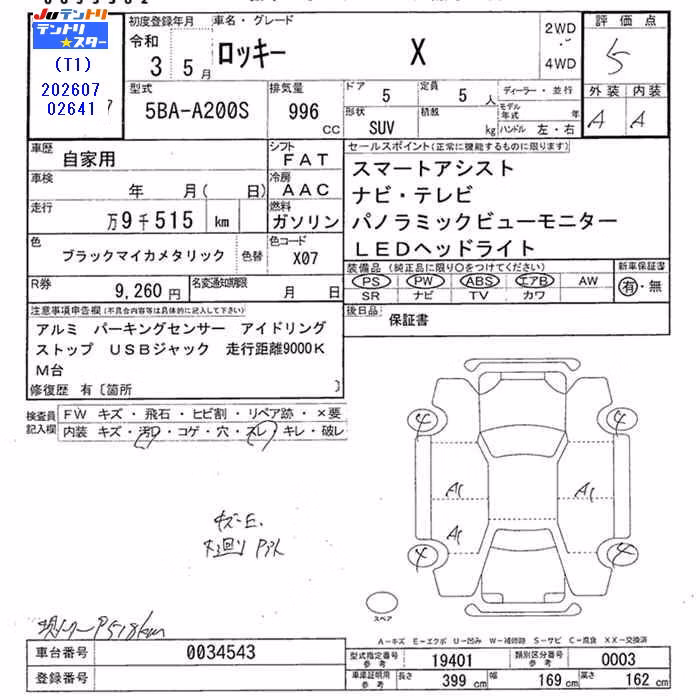 JUテントリ
テントリ★スター
(T1)
202607
02641
初度登録年月
令和
3 5月
車名・グレード
ロッキー X
2WD
4WD
評価点
5
外装 内装
A A
型式
5BA-A200S
排気量
996
CC
ドア
5
定員
5人
形状
SUV
積載
kg
ディーラー・並行
モデル年式 年
ハンドル 左・右
車歴
自家用
シフト
FAT
車検
年 月( 日)
冷房
AAC
走行
万9千515 km
燃料
ガソリン
色
ブラックマイカメタリック
色替
色コード
X07
R券
9,260円
名変通知期限
月 日
セールスポイント(正常に機能するものに限ります)
スマートアシスト
ナビ・テレビ
パノラミックビューモニター
LEDヘッドライト
装備品(純正品に限り○をつけてください)
PS PW ABS エアB AW
SR ナビ TV カワ
新車保証書
有・無
後日品
保証書
注意事項申告欄(不具合内容等は具体的に記入して下さい)
アルミ パーキングセンサー アイドリング
ストップ USBジャック 走行距離9000K
M台
修復歴 有〔箇所 〕
検査員
記入欄
FW キズ・飛石・ヒビ割・リペア跡・×要
内装 キズ・汚レ・コゲ・穴・スレ・キレ・破レ
4 4
A1 A1
A1
4 4
スペア
A-キズ E-エクボ U-凹み W-補修跡 S-サビ C-腐食 XX-交換済
車台番号
0034543
登録番号
型式指定番号
参考
19401
類別区分番号
参考
0003
車庫証明用
参考
長さ
399 cm
幅
169 cm
高さ
162 cm